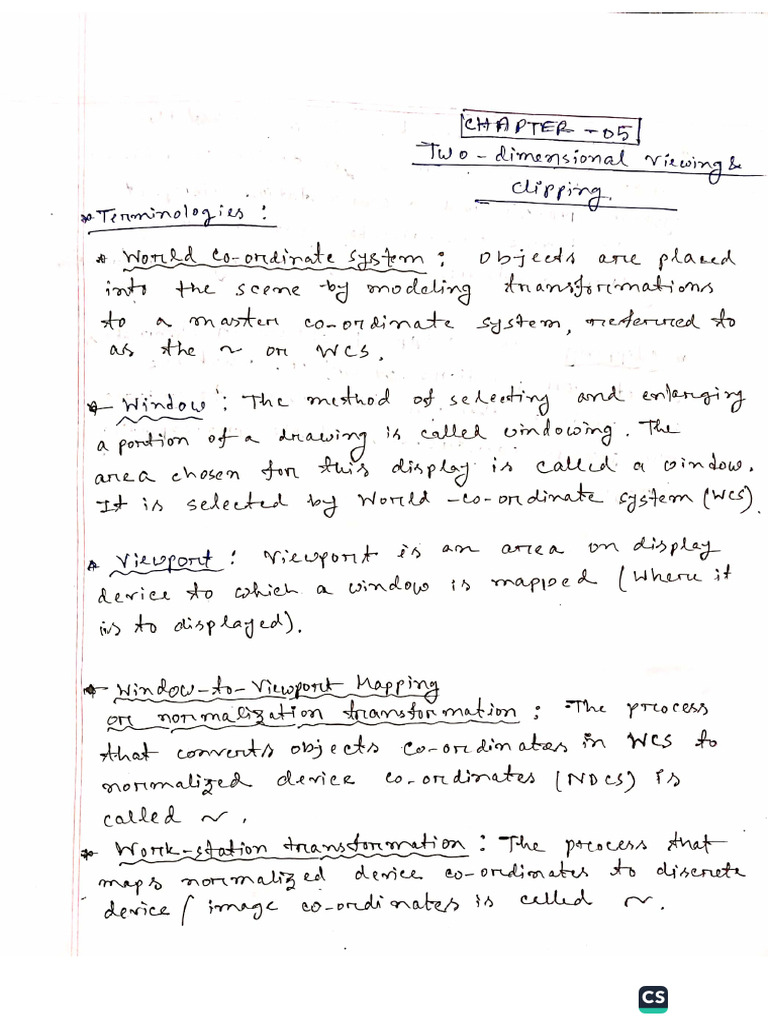 CHAPTER -05
Two-dimensional viewing &
clipping.
* Terminologies :
* World co-ordinate system : Objects are placed
into the scene by modeling transformations
to a master co-ordinate system, referred to
as the ~ or WCS.
* Window : The method of selecting and enlarging
a portion of a drawing is called windowing. The
area chosen for this display is called a window.
It is selected by World-co-ordinate system (WCS).
* Viewport : Viewport is an area on display
device to which a window is mapped (where it
is to displayed).
* Window-to-Viewport Mapping
or normalization transformation : The process
that converts objects co-ordinates in WCS to
normalized device co-ordinates (NDCS) is
called ~.
* Work-station transformation : The process that
maps normalized device co-ordinates to discrete
device / image co-ordinates is called ~.
CS